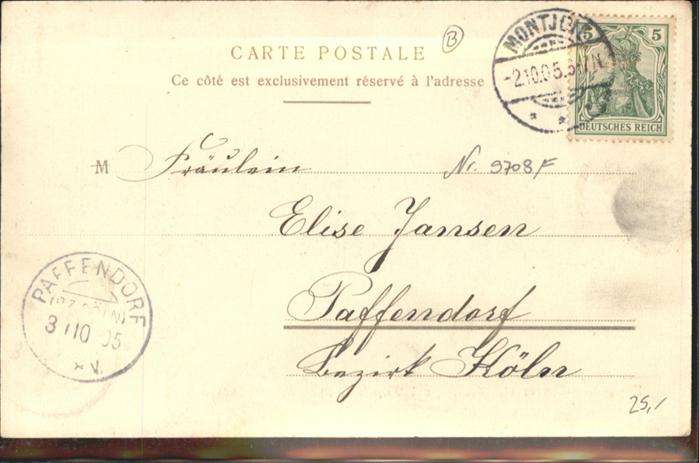 B
CARTE POSTALE
Ce côté est exclusivement réservé à l'adresse
MONTJOIE
-2.10.05.5-
5 5
DEUTSCHES REICH
M Fräulein Nr. 9708F
Elise Jansen
Paffendorf
Bezirk Köln
PAFFENDORF
3 10 05
V.
25,-